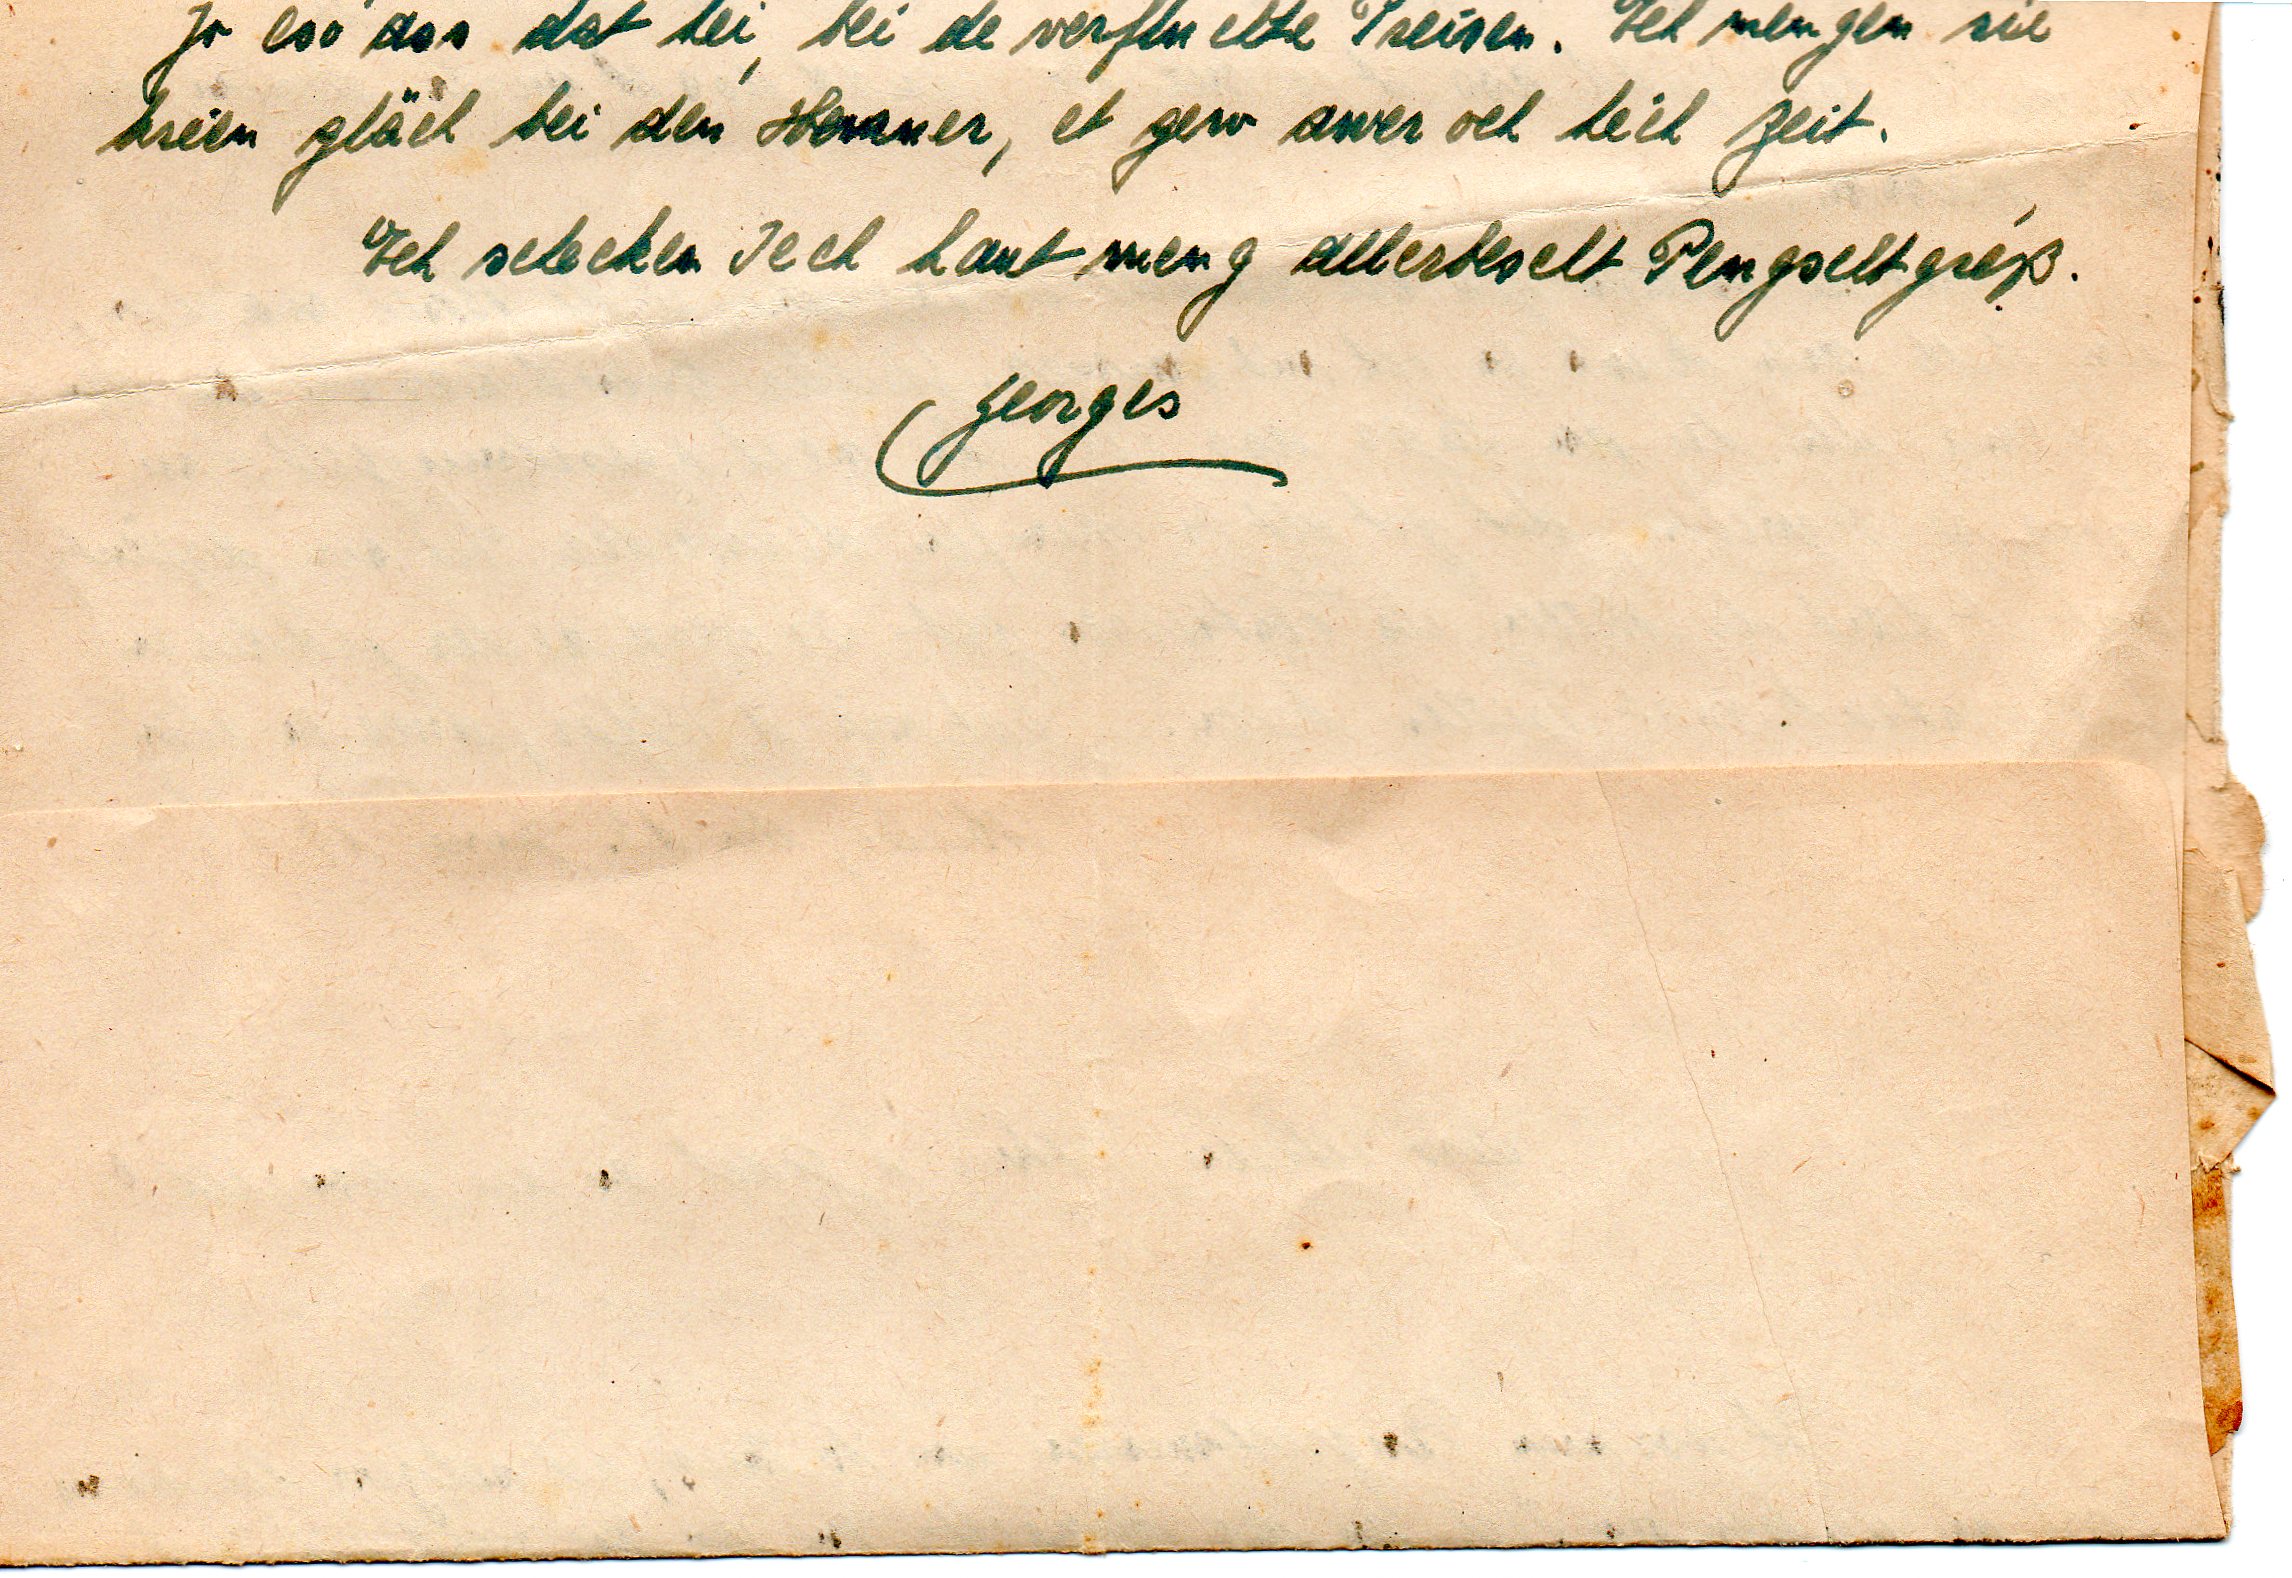 Jo eso ass dat hei, bei de verfluchte Preisen. Ech mengen sie
kréien gläch bei den Hammer, et gew awer och héich Zeit.
Ech schecken Iech haut meng allerbescht Pengschtgréß.
Georges